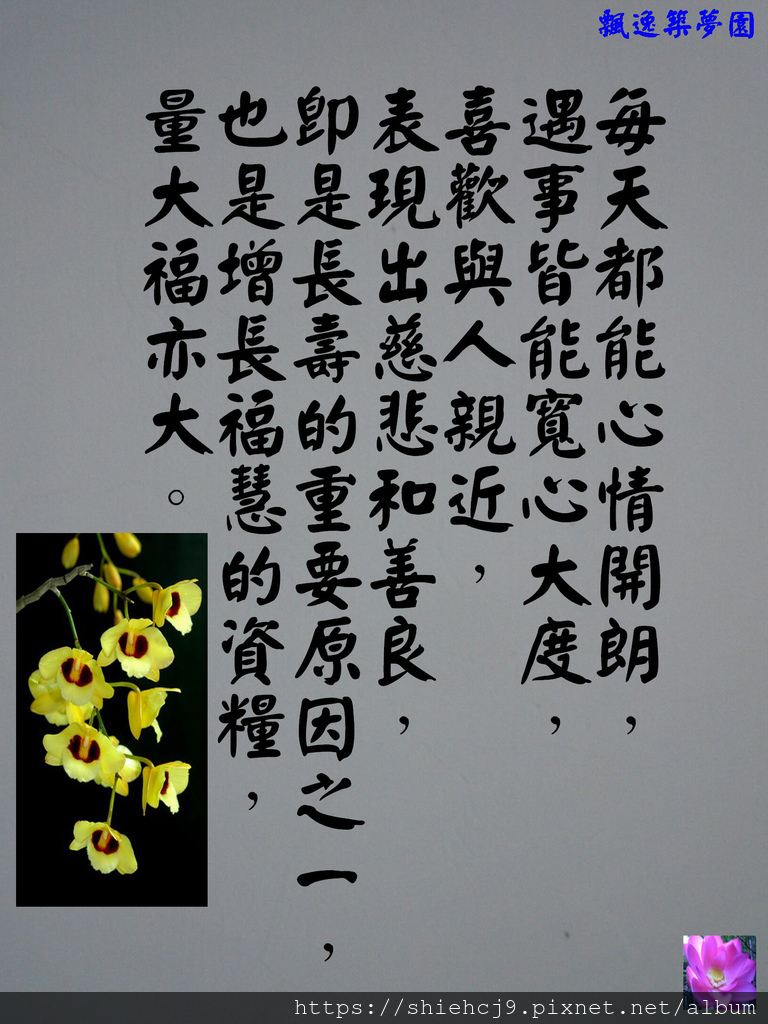 飄逸築夢園
每天都能心情開朗，
遇事皆能寬心大度，
喜歡與人親近，
表現出慈悲和善良，
即是長壽的重要原因之一，
也是增長福慧的資糧，
量大福亦大。
https://shiehcj9.pixnet.net/album